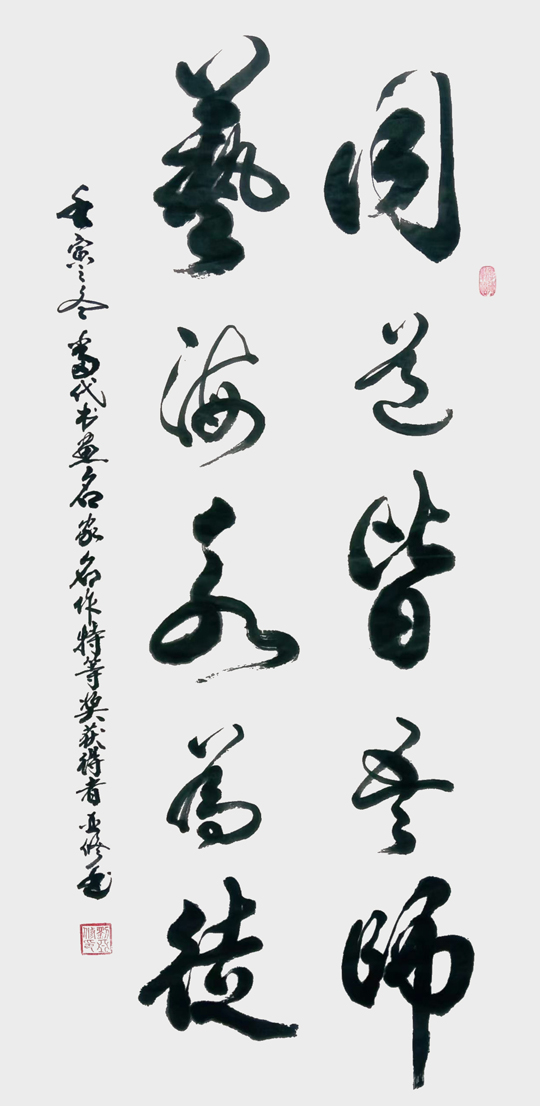 同道皆吾師
藝海永為徒
壬寅之冬當代书畫名家名作特等奖获得者亚修書